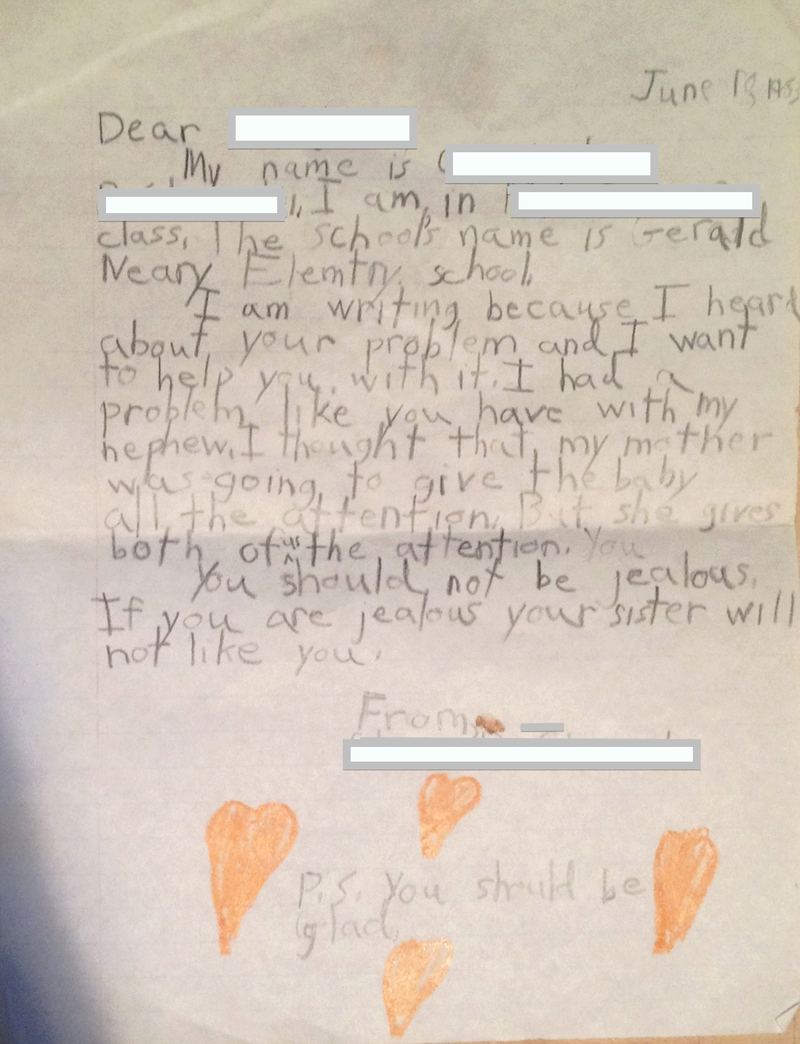 June
Dear
My name is
I am, in
class. The school's name is Gerald
Neary Elemtry school.
I am writing because I heard
about your problem and I want
to help you with it. I had a
problem like you have with my
nephew. I thought that my mother
was going to give the baby
all the attention. But she gives
both of us the attention. You
You should not be jealous.
If you are jealous your sister will
not like you.
From
P.S. you should be
glad